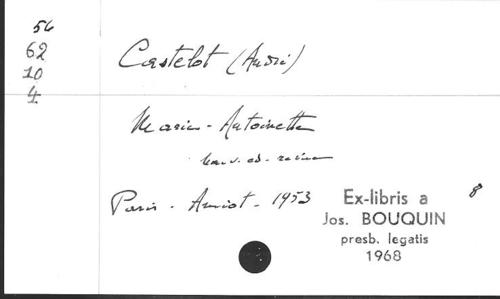 56
62
10
4
Castelot (André)
Marie-Antoinette
Nouv. ed.
Paris - Amiot - 1953
8
Ex-libris a
Jos. BOUQUIN
presb. legatis
1968